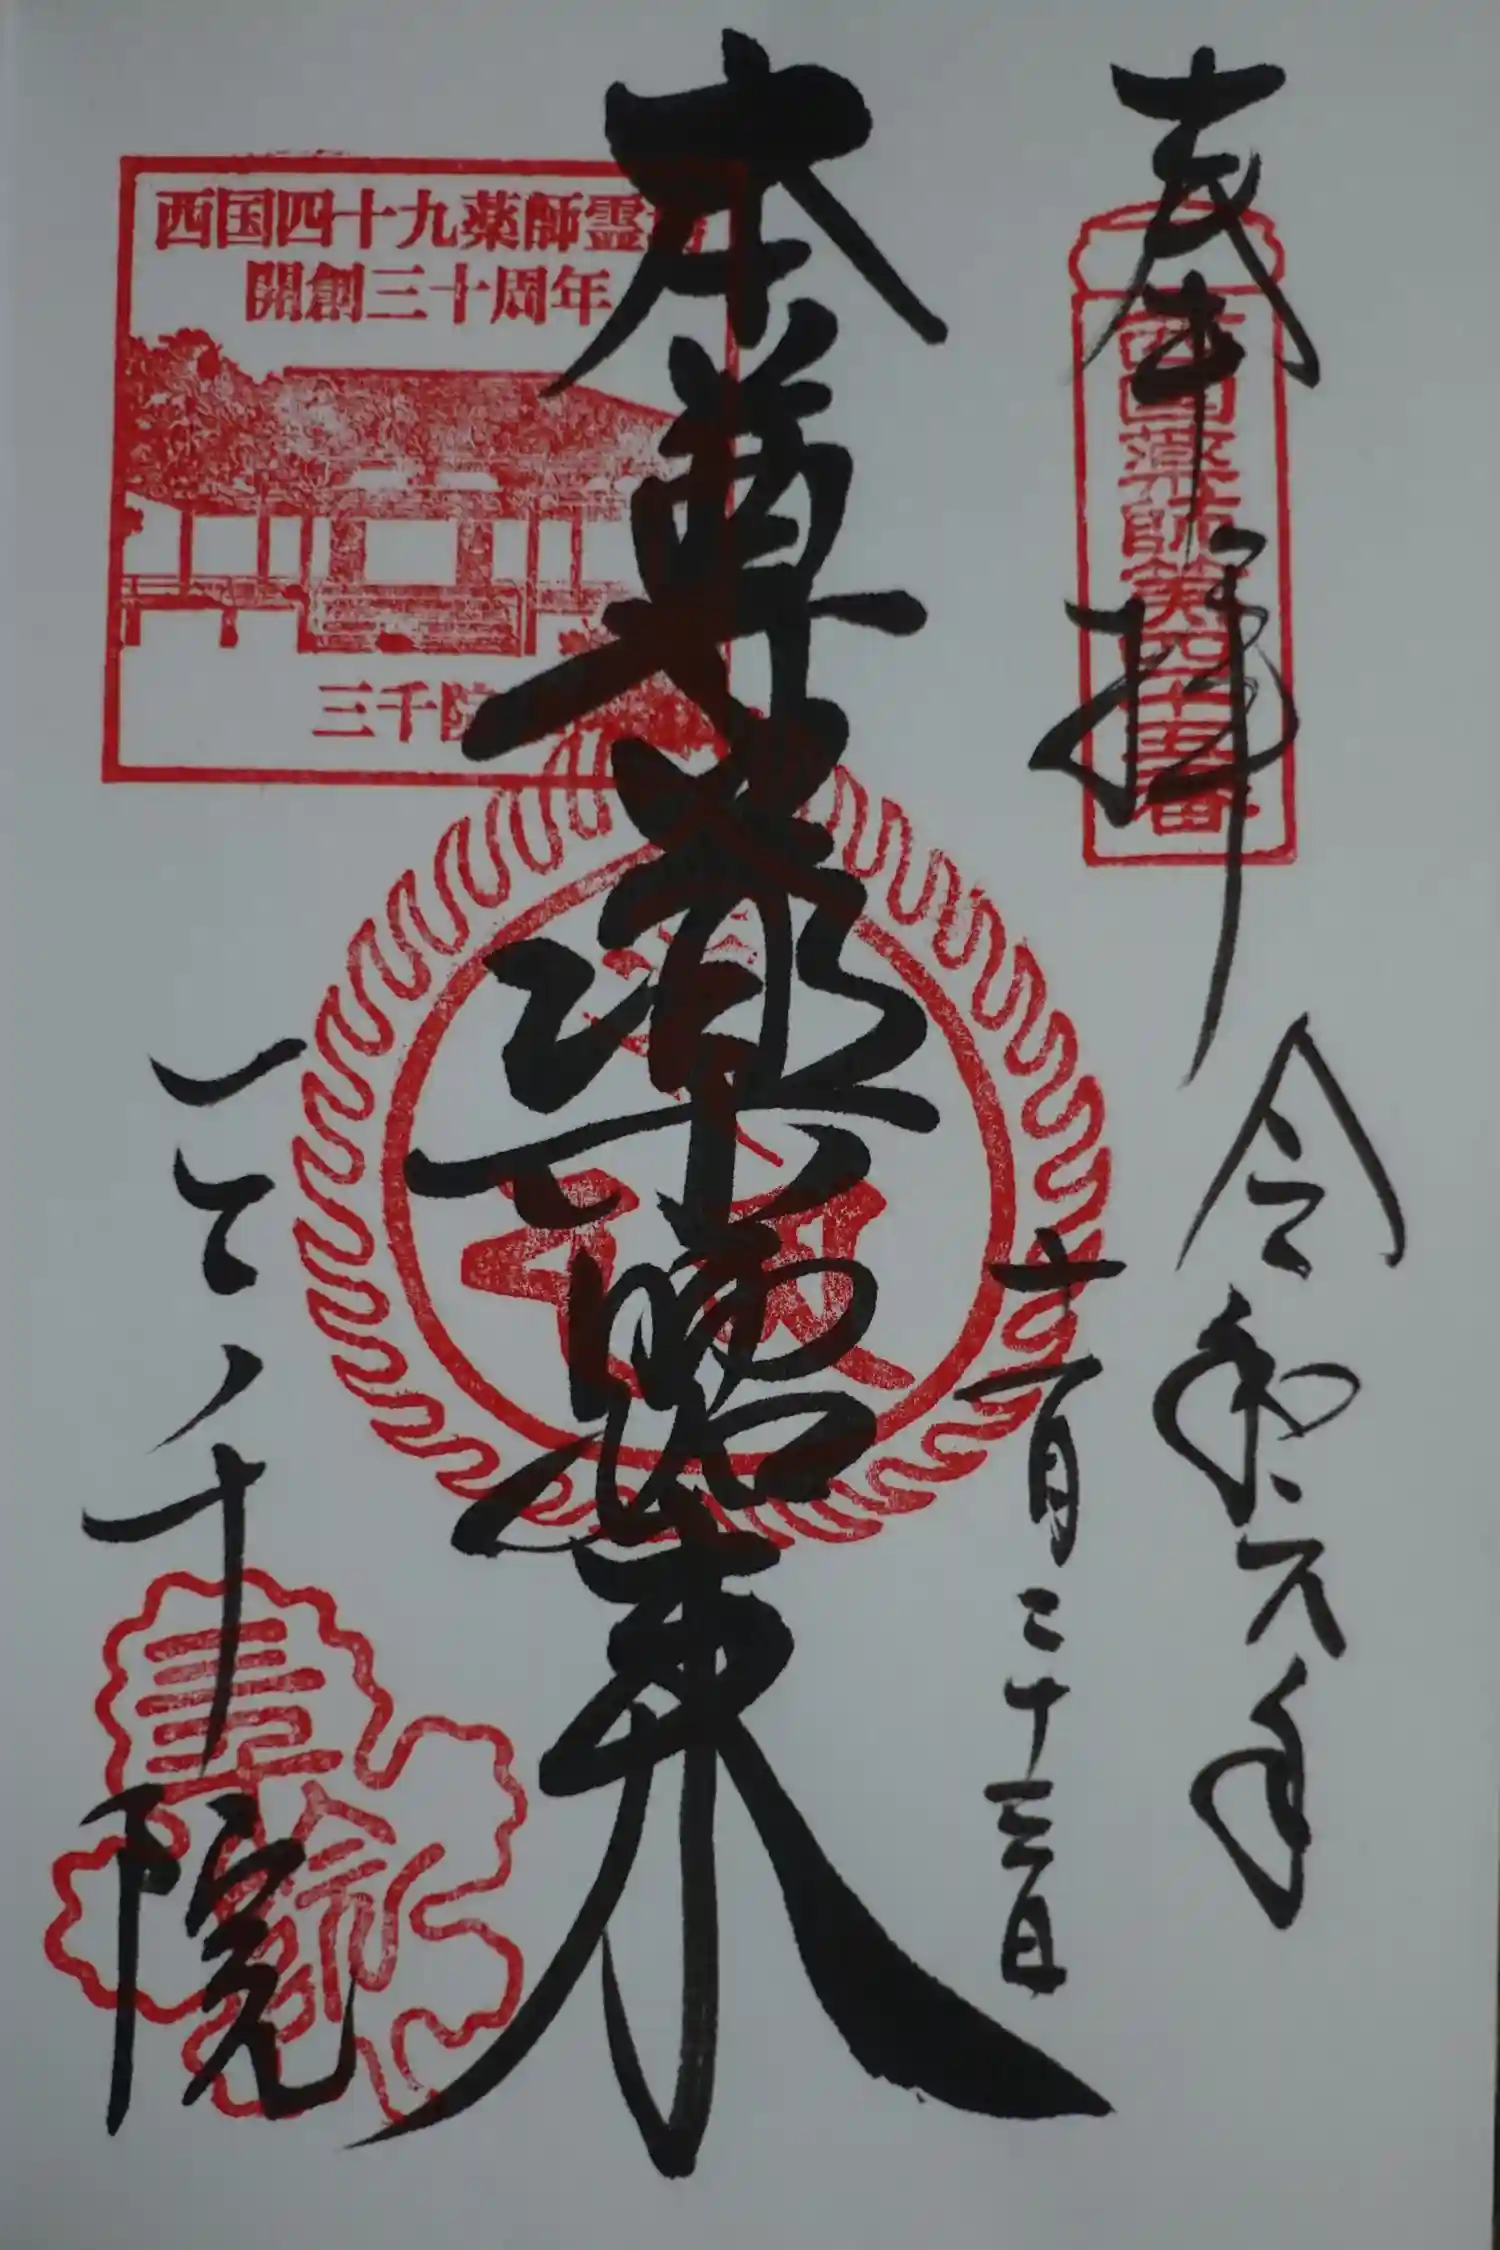 奉拝
西国薬師第四十五番
令和元年
十一月二十三日
本尊藥師如来
西国四十九薬師霊場
開創三十周年
三千院
三千院